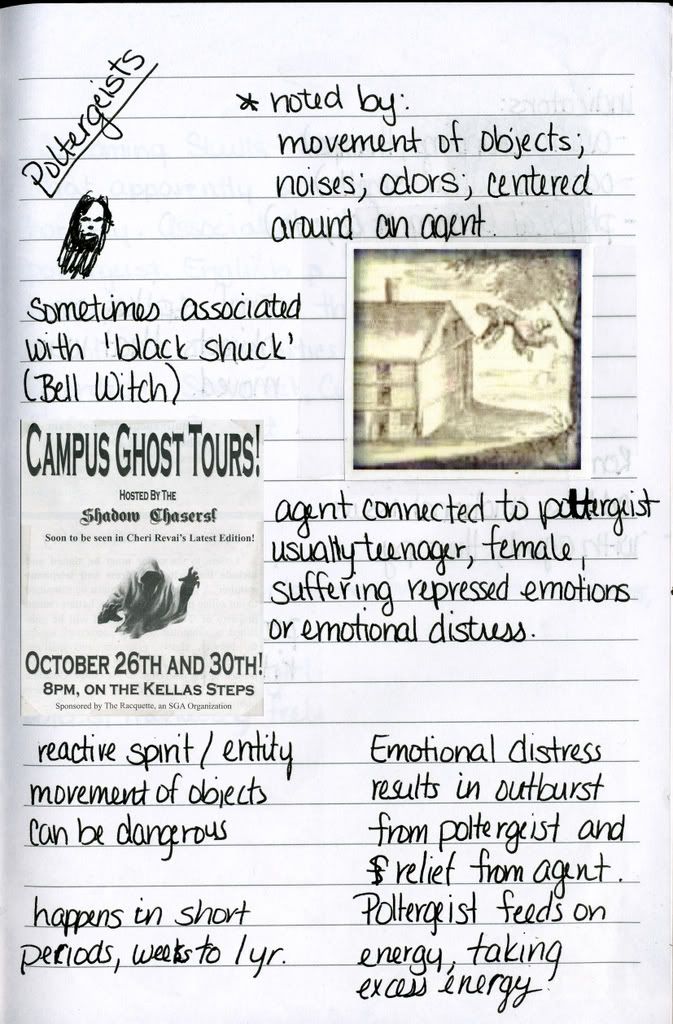 Poltergeists
* noted by:
movement of objects;
noises; odors; centered
around an agent.
sometimes associated
with 'black shuck'
(Bell Witch)
CAMPUS GHOST TOURS!
HOSTED BY THE
Shadow Chasers!
Soon to be seen in Cheri Revai's Latest Edition!
OCTOBER 26TH AND 30TH!
8PM, ON THE KELLAS STEPS
Sponsored by The Racquette, an SGA Organization
agent connected to poltergeist
usually teenager, female,
suffering repressed emotions
or emotional distress.
reactive spirit / entity
movement of objects
can be dangerous
happens in short
periods, weeks to 1yr.
Emotional distress
results in outburst
from poltergeist and
relief from agent.
Poltergeist feeds on
energy, taking
excess energy.